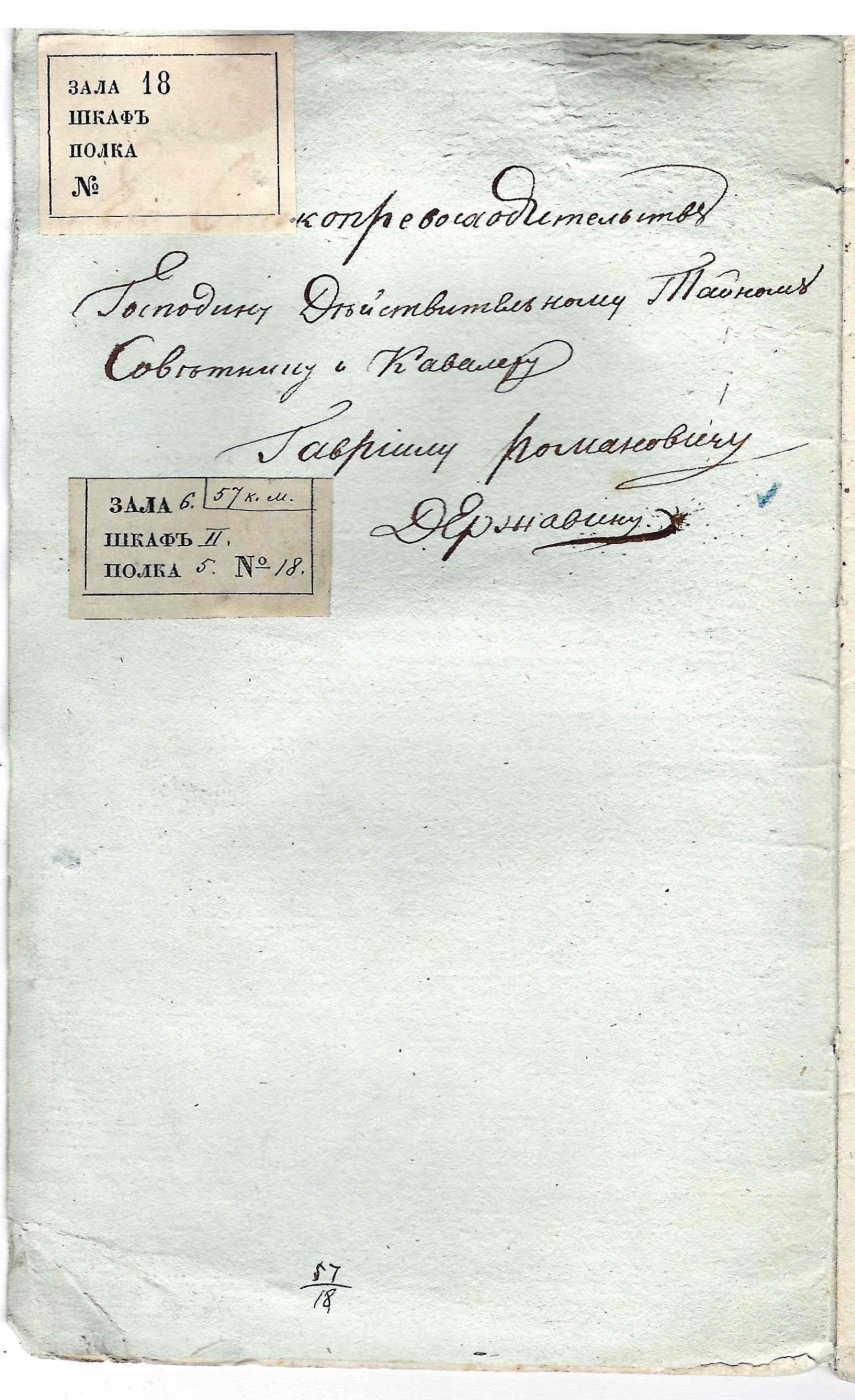 ЗАЛА 18
ШКАФЪ
ПОЛКА
№
копревосходительству
Господину Дѣйствительному Тайному
Совѣтнику и Кавалеру
Гаврiилу Романовичу
Державину
ЗАЛА 6. 57 к. м.
ШКАФЪ II.
ПОЛКА 5. № 18.
57
18